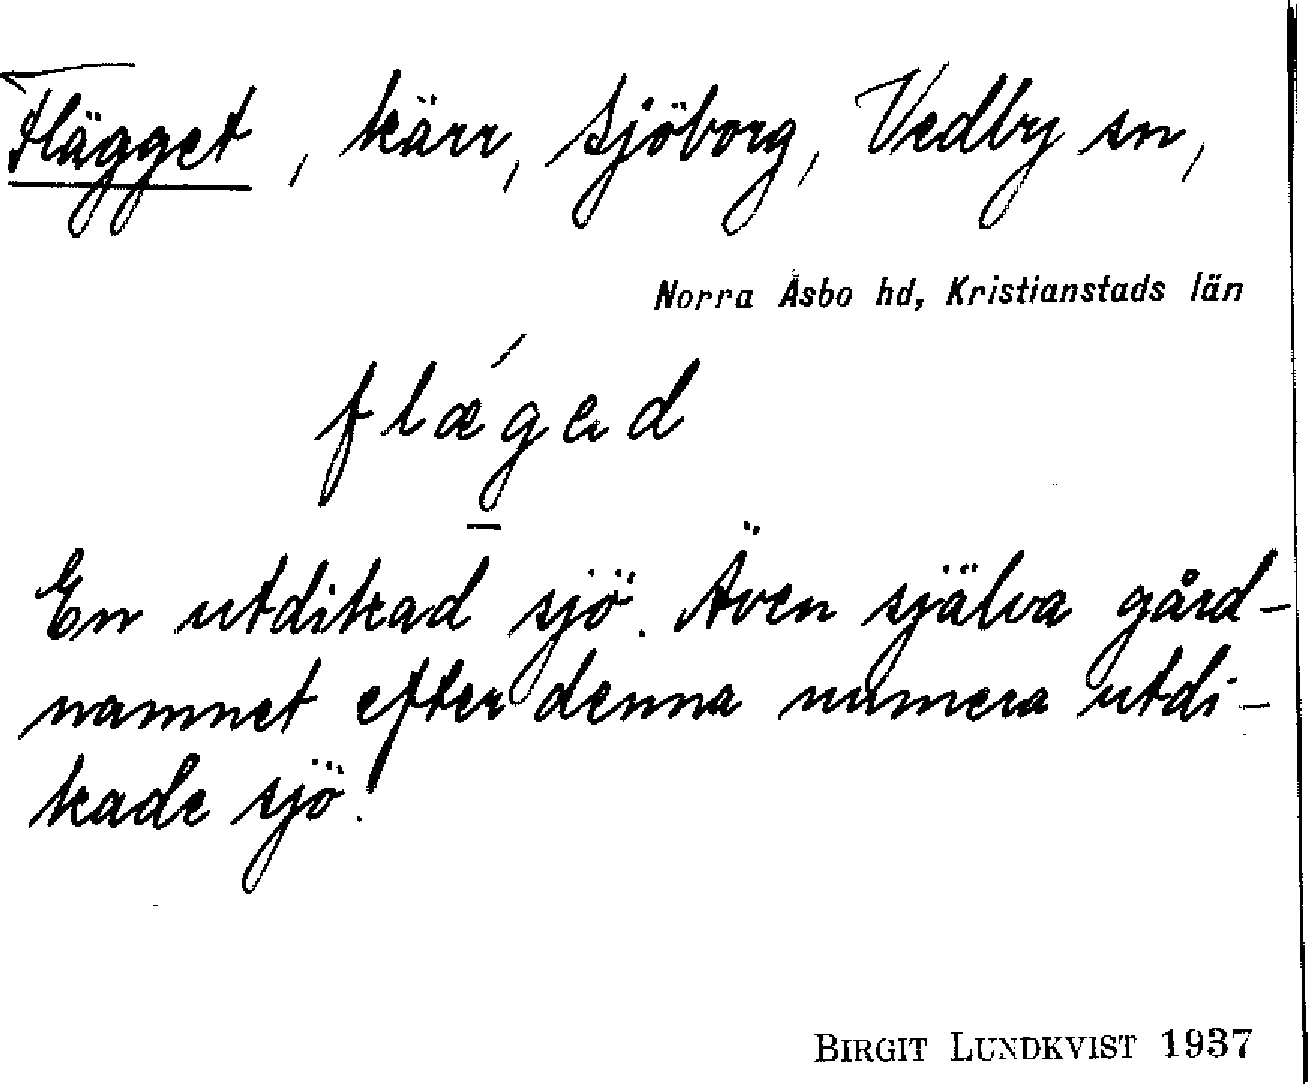 Flägget, kärr, Sjöborg, Vedby sn,
Norra Åsbo hd, Kristianstads län
flǽged
En utdikad sjö. Även själva gård-
namnet efter denna numera utdi-
kade sjö.
BIRGIT LUNDKVIST 1937